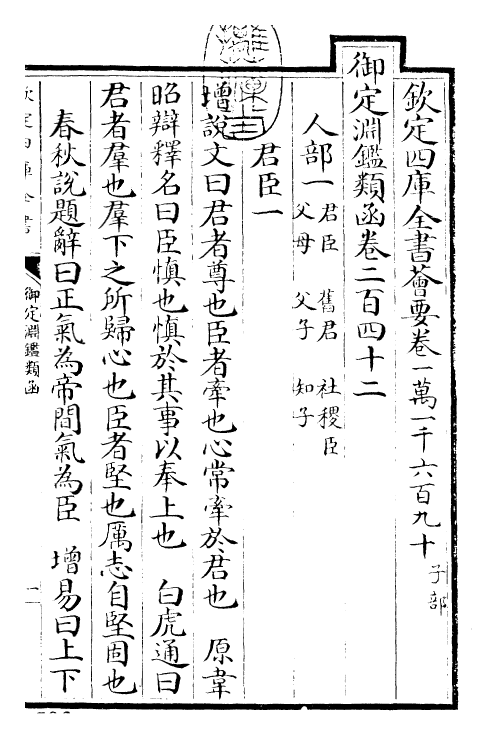 欽定四庫全書薈要卷一萬一千六百九十 子部
御定淵鑑類函卷二百四十二
人部一 君臣 舊君 社稷臣
父母 父子 知子
君臣一
增說文曰君者尊也臣者牽也心常牽於君也 原韋
昭辯釋名曰臣慎也慎於其事以奉上也 白虎通曰
君者羣也羣下之所歸心也臣者堅也厲志自堅固也
春秋說題辭曰正氣為帝間氣為臣 增易曰上下
欽定四庫全書
御定淵鑑類函
一